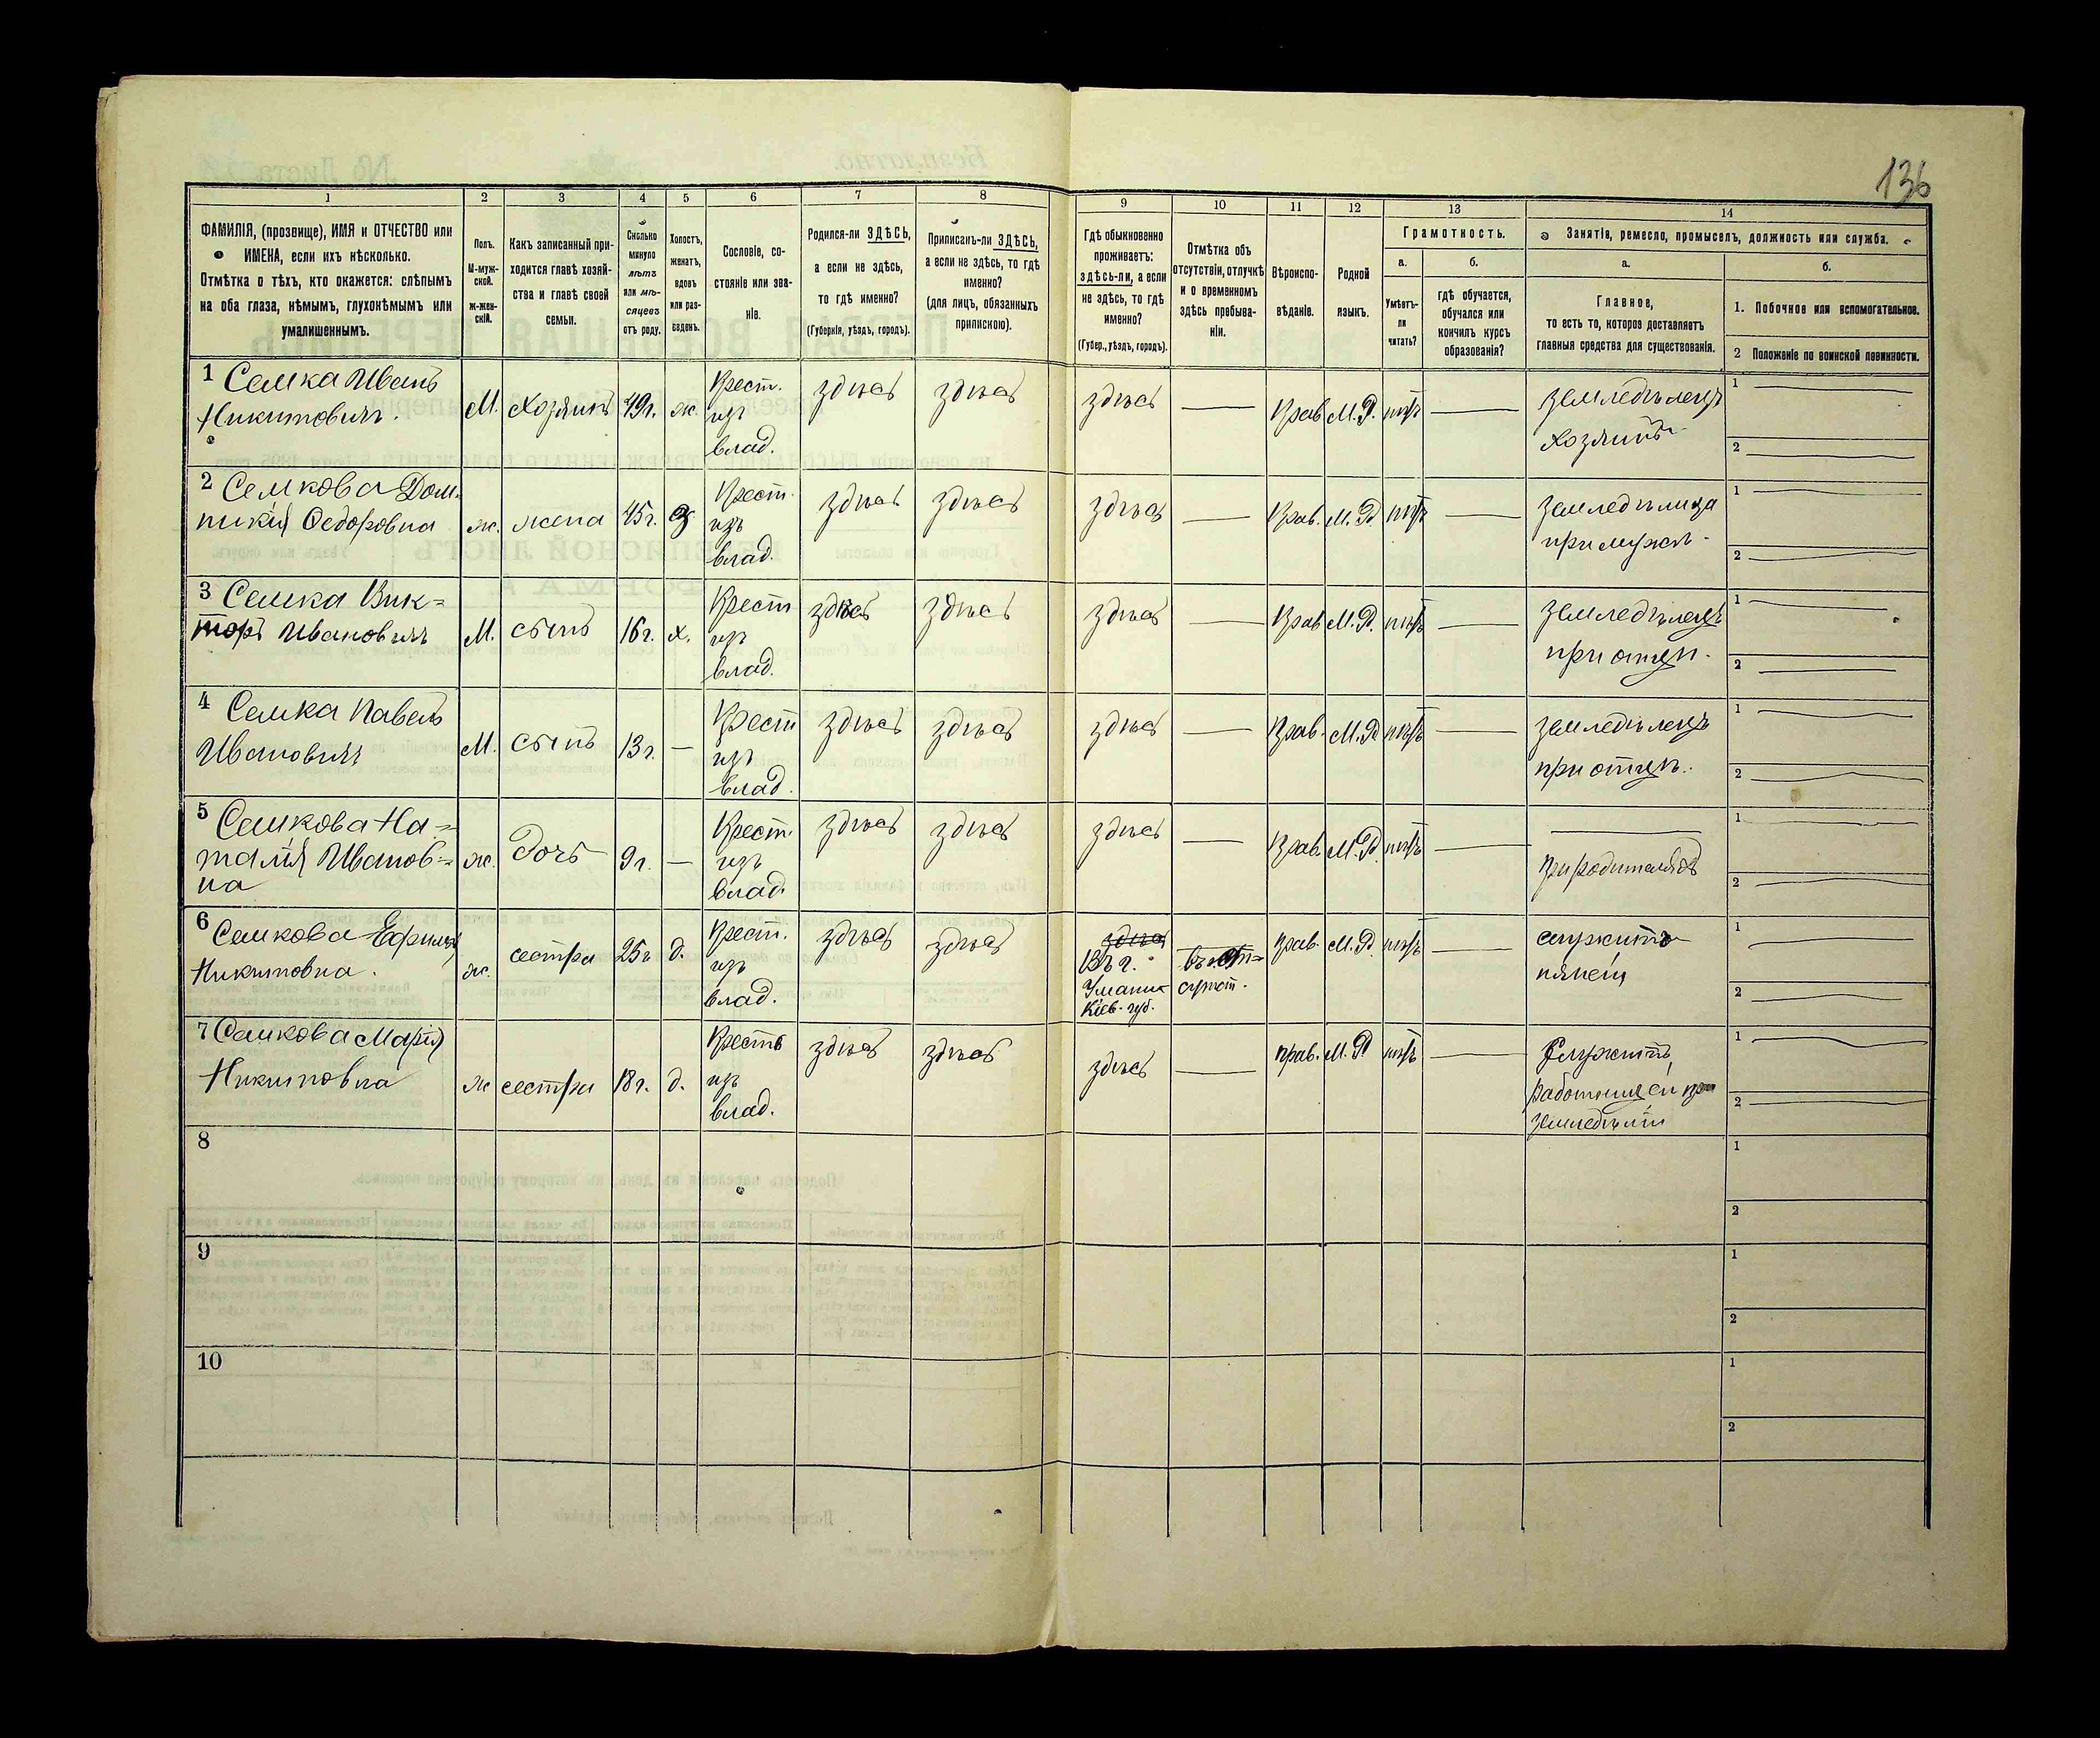 136
1 2 3 4 5 6 7 8 9 10 11 12 13 14
ФАМИЛІЯ, (прозвище), ИМЯ и ОТЧЕСТВО или
ИМЕНА, если ихъ нѣсколько.
Отмѣтка о тѣхъ, кто окажется: слѣпымъ
на оба глаза, нѣмымъ, глухонѣмымъ или
умалишеннымъ.
Полъ.
М-муж-
ской.
ж-жен-
скій.
Какъ записанный при-
ходится главѣ хозяй-
ства и главѣ своей
семьи.
Сколько
минуло
лѣтъ
или мѣ-
сяцевъ
отъ роду.
Холостъ,
женатъ,
вдовъ
или раз-
веденъ.
Сословіе, со-
стояніе или зва-
ніе.
Родился-ли ЗДѢСЬ,
а если не здѣсь,
то гдѣ именно?
(Губернія, уѣздъ, городъ).
Приписанъ-ли ЗДѢСЬ,
а если не здѣсь, то гдѣ
именно?
(для лицъ, обязанныхъ
припискою).
Гдѣ обыкновенно
проживаетъ:
здѣсь-ли, а если
не здѣсь, то гдѣ
именно?
(Губер., уѣздъ, городъ).
Отмѣтка объ
отсутствіи, отлучкѣ
и о временномъ
здѣсь пребыва-
ніи.
Вѣроиспо-
вѣданіе.
Родной
языкъ.
Грамотность.
а.
Умѣетъ-
ли
читать?
б.
гдѣ обучается,
обучался или
кончилъ курсъ
образованія?
Занятіе, ремесло, промыселъ, должность или служба.
а.
Главное,
то есть то, которое доставляетъ
главныя средства для существованія.
б.
1. Побочное или вспомогательное.
2 Положеніе по воинской повинности.
1 Семка Иванъ
Никитовичъ.
М. Хозяинъ 49г. ж.
Крест.
изъ
влад.
здѣсь здѣсь здѣсь Прав М.Р. нѣтъ
земледѣлецъ
хозяинъ
1
2
2 Семкова Дом-
никія Ѳедоровна
ж. жена 45г. з
Крест.
изъ
влад.
здѣсь здѣсь здѣсь Прав. М.Р. нѣтъ
земледѣлица
при мужѣ
1
2
3 Семка Вик=
торъ Ивановичъ
М. сынъ 16г. х.
Крест
изъ
влад.
здѣсь здѣсь здѣсь Прав М.Р. нѣтъ
земледѣлецъ
при отцѣ.
1
2
4 Семка Павелъ
Ивановичъ
М. сынъ 13г.
Крест
изъ
влад.
здѣсь здѣсь здѣсь Прав. М.Р нѣтъ
земледѣлецъ
при отцѣ.
1
2
5 Семкова На=
талія Иванов=
на
ж. дочь 9г.
Крест.
изъ
влад.
здѣсь здѣсь здѣсь Прав. М.Р. нѣтъ
при родителяхъ
1
2
6 Семкова
Никитовна.
ж. сестра 25г д.
Крест.
изъ
влад.
здѣсь здѣсь
здѣсь
Въ г.
Умани
Кіев. губ.
прав. М.Р. нѣтъ
служитъ
няней
1
2
7 Семкова Марія
Никитовна
ж сестра 18г. д.
Крестъ
изъ
влад.
здѣсь здѣсь здѣсь прав. М.Р нѣтъ
Служитъ
работницей при
земледѣліи
1
2
8
1
2
9
1
2
10
1
2